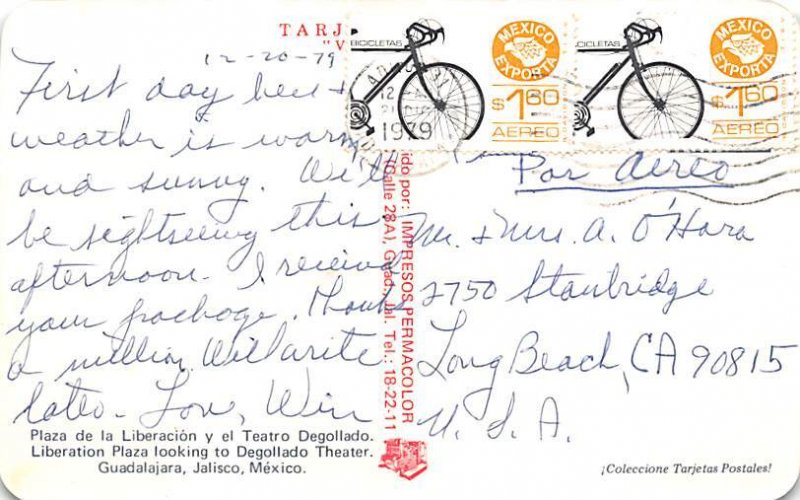 TARJ
"V
12-20-79
First day here +
weather is warm
and sunny. Will
be sightseeing this
afternoon. I received
your package. Thanks
a million. Will write
later. Love, Win
Plaza de la Liberación y el Teatro Degollado.
Liberation Plaza looking to Degollado Theater.
Guadalajara, Jalisco, México.
BICICLETAS
MEXICO
EXPORTA
$1.60
AEREO
BICICLETAS
MEXICO
EXPORTA
$1.60
AEREO
12
1979
ido por: IMPRESOS PERMACOLOR
(Calle 28A), Guad. Jal. Tel.: 18-22-11
Por Aereo
Mr. & Mrs. A. O'Hara
2750 Stanbridge
Long Beach, CA 90815
U.S.A.
¡Coleccione Tarjetas Postales!